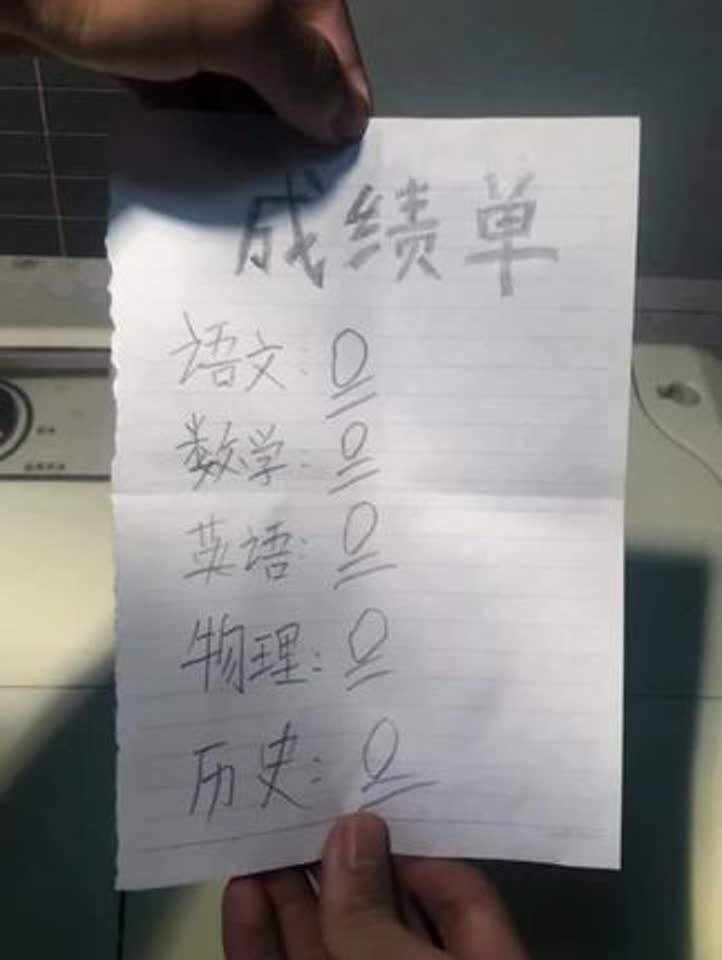 成绩单
语文：0
数学：0
英语：0
物理：0
历史：0